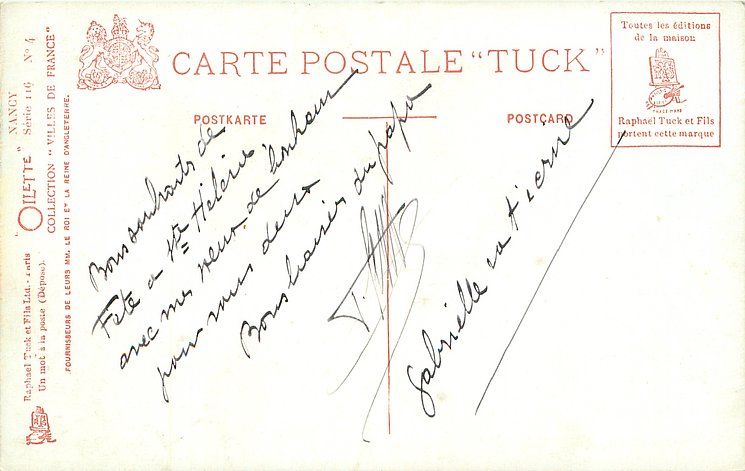 "OILETTE" NANCY
Série 116 N° 4
COLLECTION "VILLES DE FRANCE"
FOURNISSEURS DE LEURS MM. LE ROI ET LA REINE D'ANGLETERRE.
Raphael Tuck et Fils Ltd. - Paris
Un mot à la poste (Déposé).
CARTE POSTALE "TUCK"
POSTKARTE
POSTCARD
Toutes les éditions
de la maison
TRADE MARK
Raphaël Tuck et Fils
portent cette marque
Bons souhaits de
Fête à Ste Hélène
avec mes vœux de bonheur
pour vous deux
Bons baisers du papa
Gabrielle